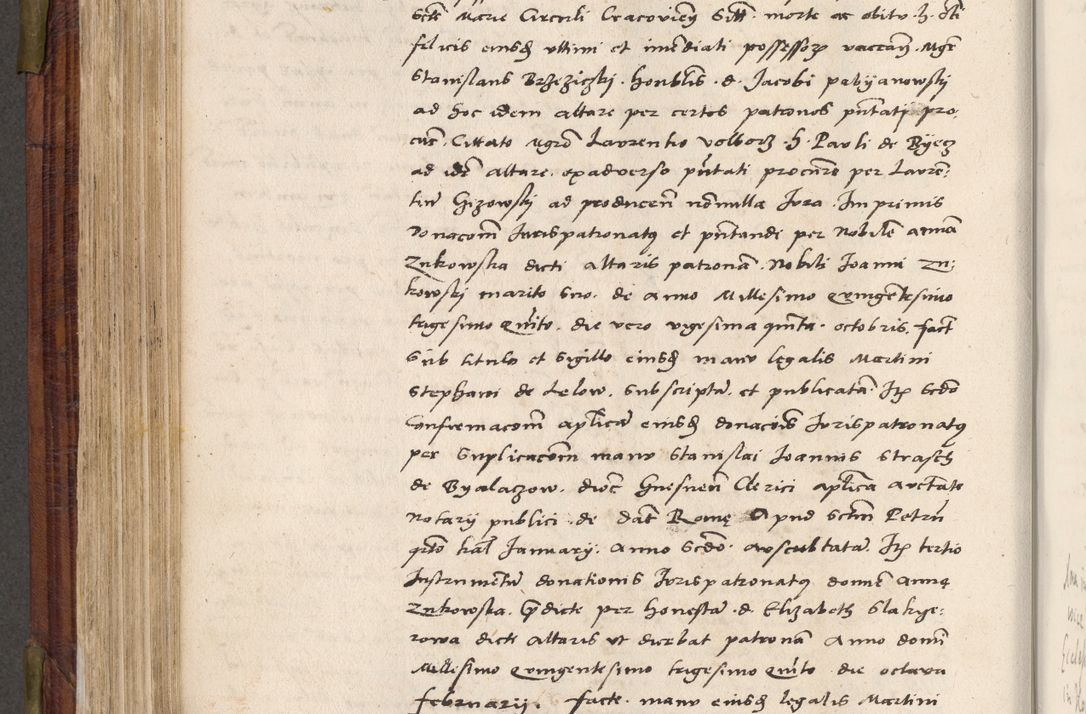 sctē Marie Circuli Cracovieñ Sitī. morte ac obitu h. Sti
felicis eiusdē ultimi et imediati possessorꝫ vaccañ. Mgr̄
Stanislaus Brzeziczki. honblis. d. Jacobi pabyanowski
ad hoc idem altare per certos patronos pn̄tati pro,
cur̄. Citato Mgrō Laurentio volborz. h. Pauli de Byecz
ad idē altare. exadverso pn̄tati procurē per Lauren:
tiū Gizowski ad producen̄ nōnulla Jura. Imprimis
Donacom̄ Jurispatronatꝯ et pn̄tandi per Nobilē annā
Znkowska dicti altaris patronā. Nobili Joanni Zn:
kowski marito suo. de anno Millesimo Quingētesimo
trigesimo Quīto. die vero vigesima quīta. octobris. fact̄
Sub titulo et Sigillo eiusdē manu legalis Martini
Stephani de Lelow. Subscriptā. et publicatā. Itꝫ Scdō
Confirmacom̄ aplicā eiusdē donacōis Jurispatronatꝯ
per Suplicacom̄ manu Stanislai Joannis Strasch
de Byalaczow. dioc̄ Gnesnen̄ Clerici aplica auctate
Notarij publici. de dat̄ Rome Apud Sctum Petrū
qrto kal̄ Januarij. Anno Scdō. auscultatā. Itꝫ tertio
Instrumentū donationis Jurispatronatꝯ domnē Anne
Znkowska. p̄dicte per honestā. d. Elizabeth Slakye:
rowa dicti altaris ut dicebat patronā Anno domī
Millesimo Quingentesimo trigesimo Quīto die octava
februarij. facte. manu eiusdē legalis Martini